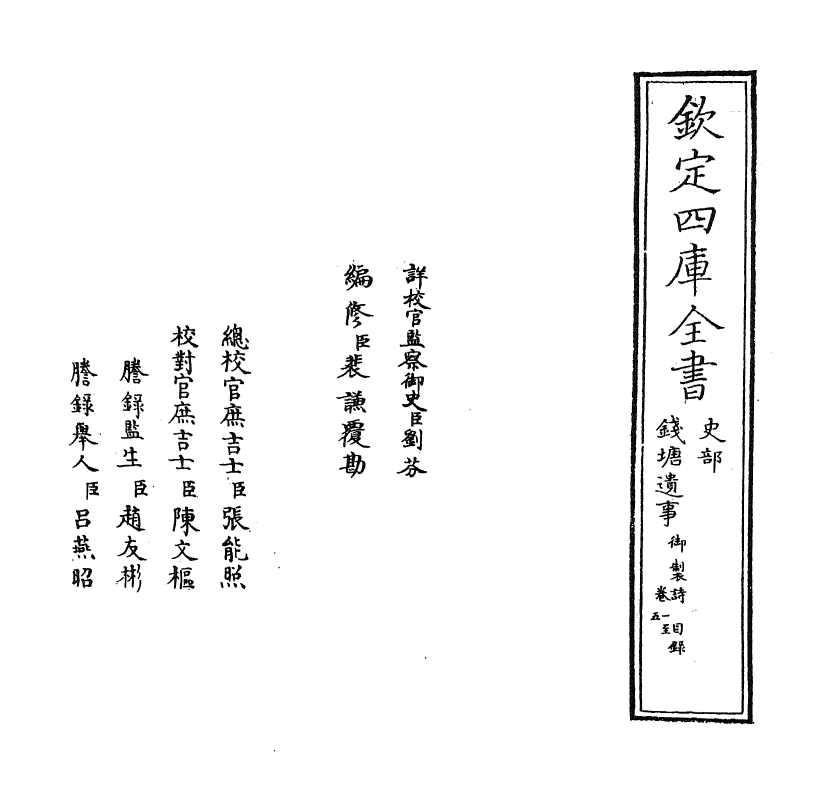 欽定四庫全書
史部
錢塘遺事
御製詩 目錄
卷一至五
詳校官監察御史臣劉芬
編修臣裴謙覆勘
總校官庶吉士臣張能照
校對官庶吉士臣陳文樞
謄錄監生臣趙友彬
謄錄舉人臣呂燕昭